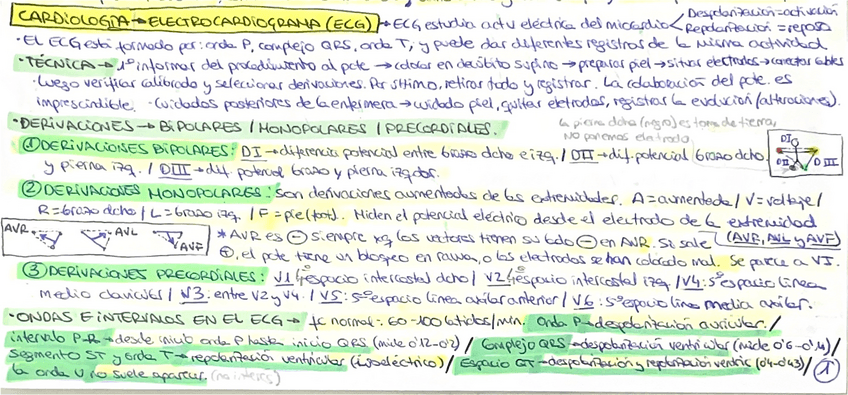 CARDIOLOGÍA → ELECTROCARDIOGRAMA (ECG) → ECG estudia actv eléctrica del miocardio < Despolarización = activación
Repolarización = reposo
· EL ECG está formado por: onda P, complejo QRS, onda T, y puede dar diferentes registros de la misma actividad
· TÉCNICA → 1º informar del procedimiento al pcte → colocar en decúbito supino → preparar piel → situar electrodos → conectar cables
· Luego verificar calibrado y seleccionar derivaciones. Por último, retirar todo y registrar. La colaboración del pcte. es
imprescindible. · Cuidados posteriores de la enfermera → cuidado piel, quitar eletrodos, registrar la evolución (alteraciones).
· DERIVACIONES → BIPOLARES / MONOPOLARES / PRECORDIALES.
la pierna dcha (negro) es toma de tierra,
NO ponemos electrodo
① DERIVACIONES BIPOLARES: DI → diferencia potencial entre brazo dcho e izq. / DII → dif. potencial brazo dcho.
y pierna izq. / DIII → dif. potencial brazo y pierna izqdos.
DI
DII
DIII
② DERIVACIONES MONOPOLARES: son derivaciones aumentadas de las extremidades. A = aumentada / V = voltaje /
R = brazo dcho / L = brazo izq. / F = pie (foot). Miden el potencial eléctrico desde el electrodo de la extremidad
(AVR, AVL y AVF)
AVR AVL AVF
* AVR es ⊖ siempre xq los vectores tienen su lado ⊖ en AVR. Si sale
⊕, el pcte tiene un bloqueo en rama, o los electrodos se han colocado mal. Se parece a V1.
③ DERIVACIONES PRECORDIALES: V1: 4º espacio intercostal dcho / V2: 4º espacio intercostal izq / V4: 5º espacio linea
medio clavicular / V3: entre V2 y V4. / V5: 5º espacio linea axilar anterior / V6: 5º espacio linea media axilar.
· ONDAS E INTERVALOS EN EL ECG → fc normal: 60-100 latidos/min. Onda P → despolarización auricular. /
intervalo P-R → desde inicio onda P hasta inicio QRS (mide 0'12-0'2) / Complejo QRS → despolarización ventricular (mide 0'6-0'14) /
Segmento ST y onda T → repolarización ventricular (isoeléctrico) / Espacio QT → despolarización y repolarización ventric (0'4-0'43) /
la onda U no suele aparecer. (no interés)
①